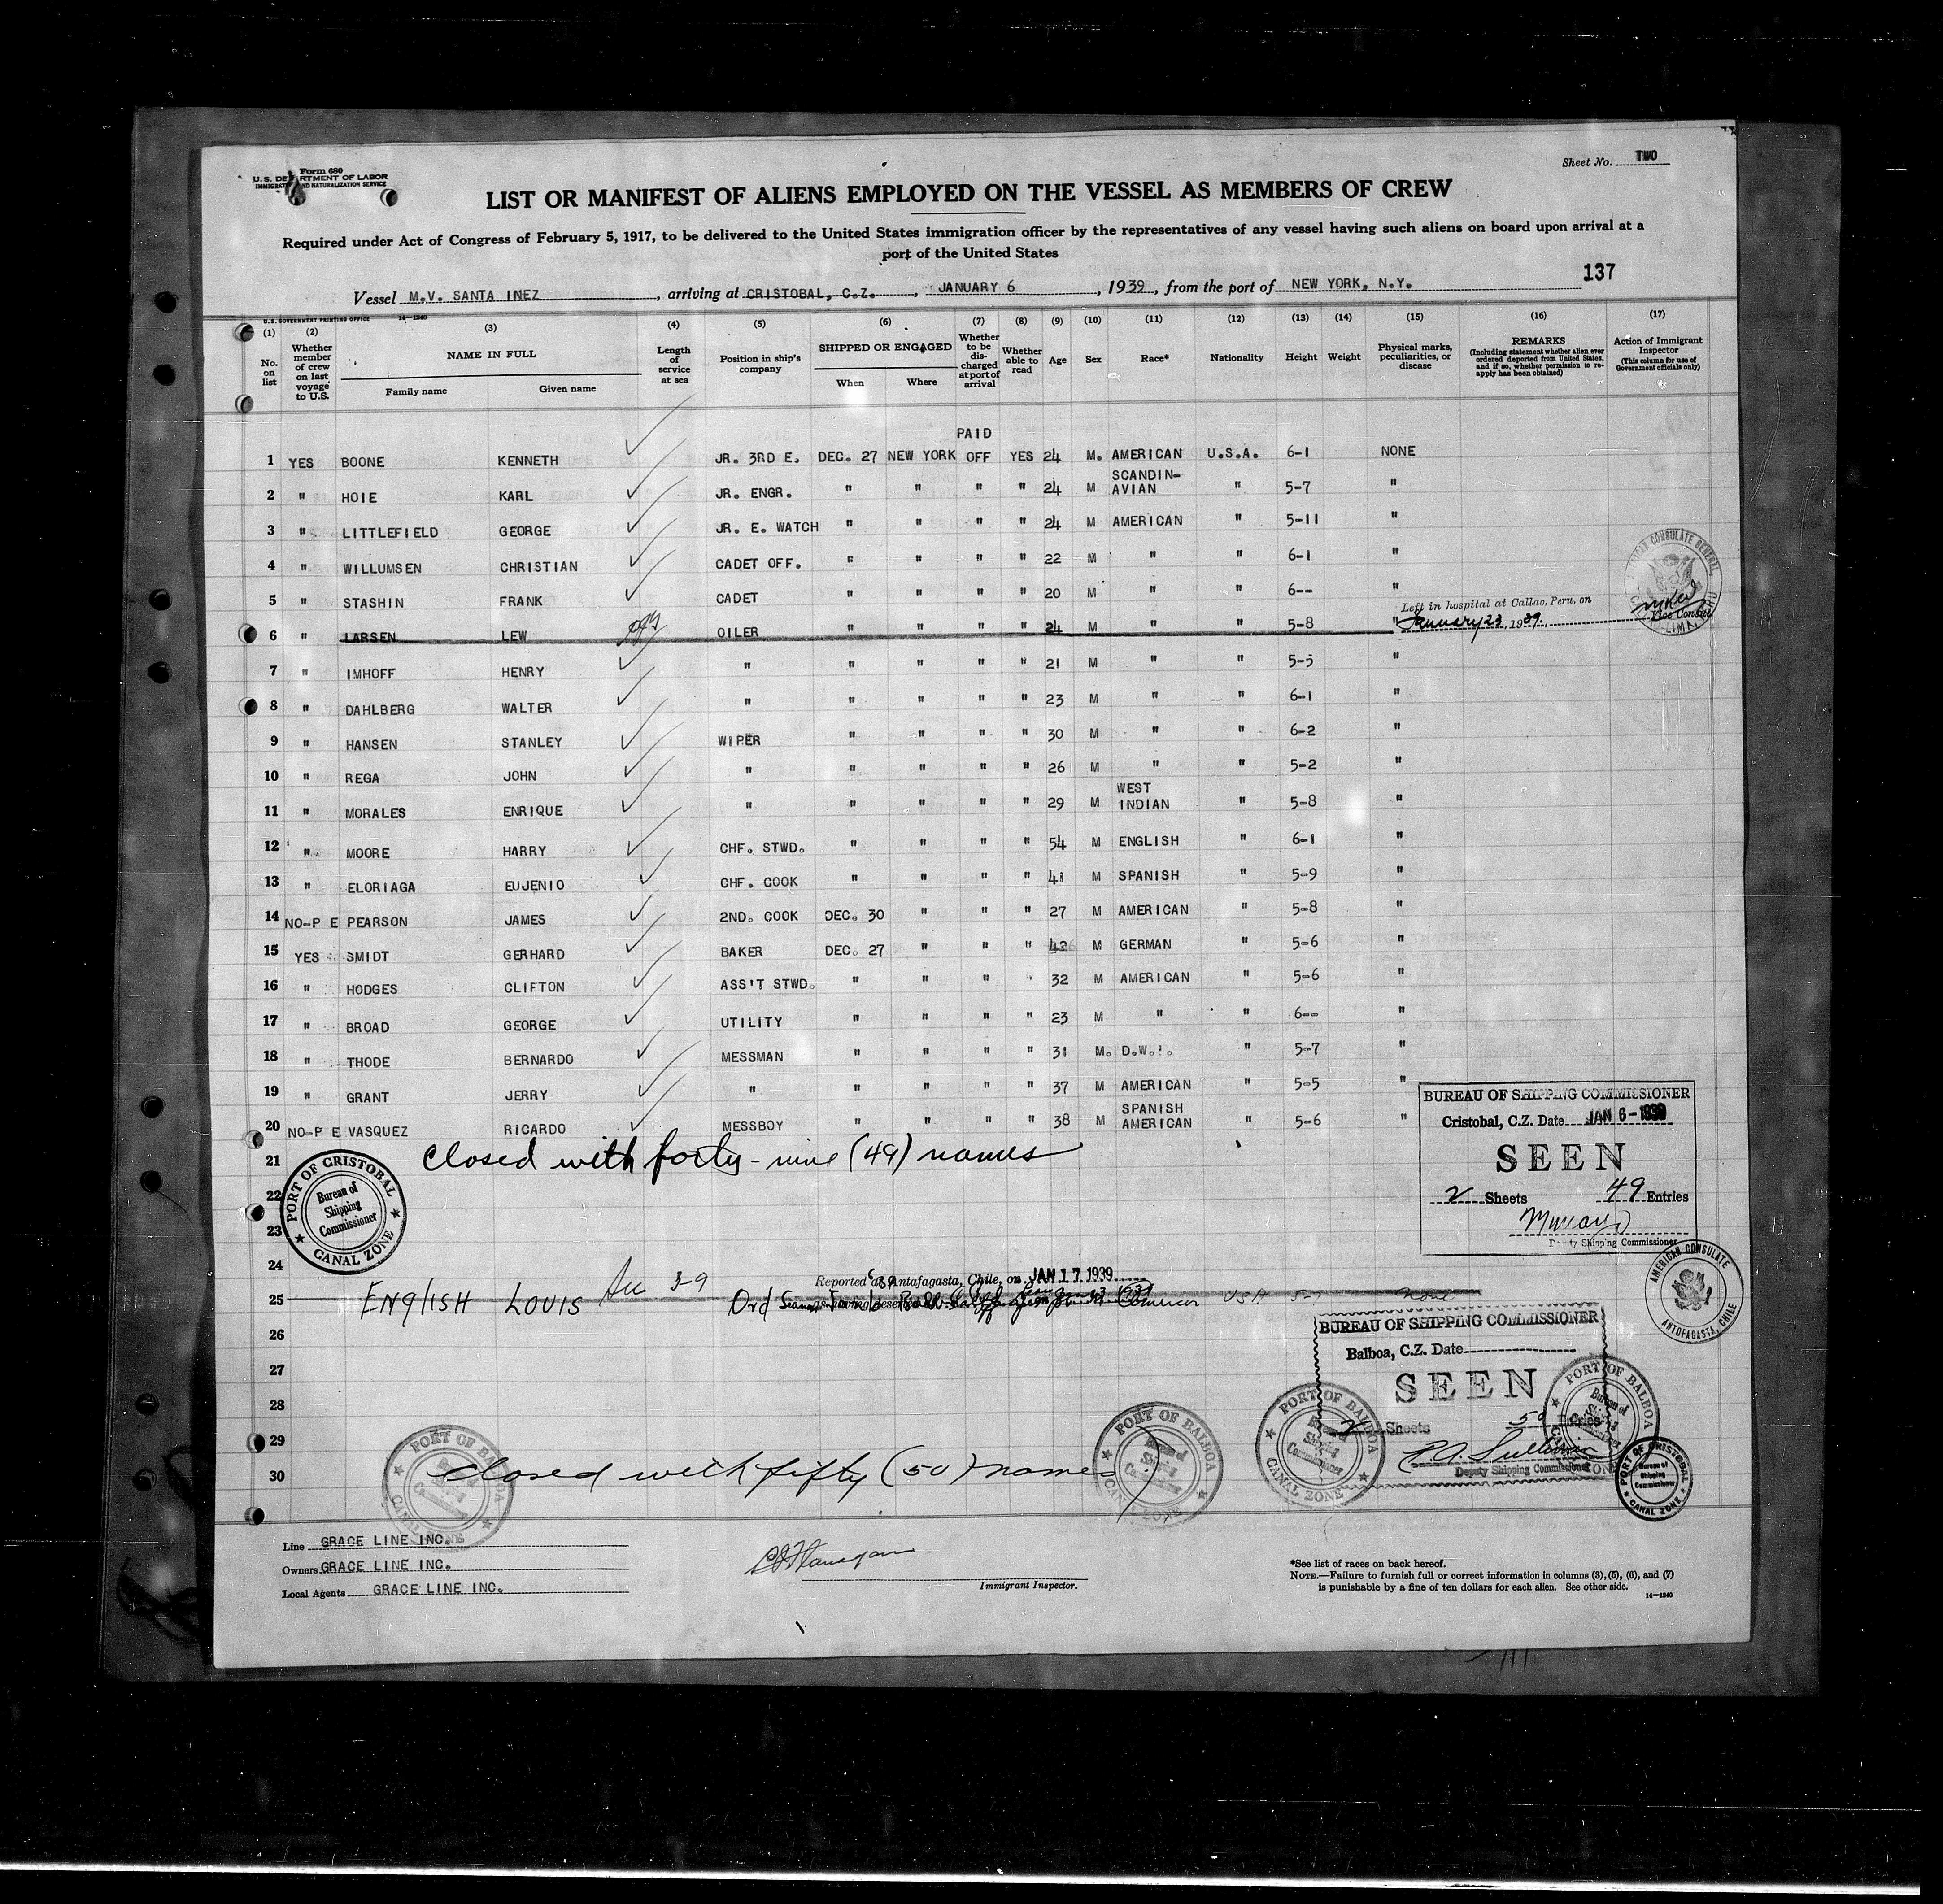 Sheet No. TWO
Form 680
U.S. DEPARTMENT OF LABOR
IMMIGRATION AND NATURALIZATION SERVICE
LIST OR MANIFEST OF ALIENS EMPLOYED ON THE VESSEL AS MEMBERS OF CREW
Required under Act of Congress of February 5, 1917, to be delivered to the United States immigration officer by the representatives of any vessel having such aliens on board upon arrival at a
port of the United States
137
Vessel M.V. SANTA INEZ, arriving at CRISTOBAL, C.Z., JANUARY 6, 1939, from the port of NEW YORK, N.Y.
U.S. GOVERNMENT PRINTING OFFICE 14—1240
(1) No. on list
(2) Whether member of crew on last voyage to U.S.
(3) NAME IN FULL
Family name Given name
(4) Length of service at sea
(5) Position in ship's company
(6) SHIPPED OR ENGAGED
When Where
(7) Whether to be discharged at port of arrival
(8) Whether able to read
(9) Age
(10) Sex
(11) Race*
(12) Nationality
(13) Height
(14) Weight
(15) Physical marks, peculiarities, or disease
(16) REMARKS (Including statement whether alien ever ordered deported from United States, and if so, whether permission to reapply has been obtained)
(17) Action of Immigrant Inspector (This column for use of Government officials only)
1 YES BOONE KENNETH JR. 3RD E. DEC. 27 NEW YORK PAID OFF YES 24 M. AMERICAN U.S.A. 6-1 NONE
2 " HOIE KARL JR. ENGR. " " " " 24 M SCANDIN-AVIAN " 5-7 "
3 " LITTLEFIELD GEORGE JR. E. WATCH " " " " 24 M AMERICAN " 5-11 "
4 " WILLUMSEN CHRISTIAN CADET OFF. " " " " 22 M " " 6-1 "
5 " STASHIN FRANK CADET " " " " 20 M " " 6-- "
Left in hospital at Callao, Peru, on
6 " LARSEN LEW OILER " " " " 24 M " " 5-8 " January 23, 1939 Vice Consul
7 " IMHOFF HENRY " " " " " 21 M " " 5-5 "
8 " DAHLBERG WALTER " " " " " 23 M " " 6-1 "
9 " HANSEN STANLEY WIPER " " " " 30 M " " 6-2 "
10 " REGA JOHN " " " " " 26 M " " 5-2 "
11 " MORALES ENRIQUE " " " " " 29 M WEST INDIAN " 5-8 "
12 " MOORE HARRY CHF. STWD. " " " " 54 M ENGLISH " 6-1 "
13 " ELORIAGA EUJENIO CHF. COOK " " " " 41 M SPANISH " 5-9 "
14 NO-P E PEARSON JAMES 2ND. COOK DEC. 30 " " " 27 M AMERICAN " 5-8 "
15 YES SMIDT GERHARD BAKER DEC. 27 " " " M GERMAN " 5-6 "
16 " HODGES CLIFTON ASS'T STWD. " " " " 32 M AMERICAN " 5-6 "
17 " BROAD GEORGE UTILITY " " " " 23 M " " 6-- "
18 " THODE BERNARDO MESSMAN " " " " 31 M. D.W.I. " 5-7 "
19 " GRANT JERRY " " " " " 37 M AMERICAN " 5-5 "
20 NO-P E VASQUEZ RICARDO MESSBOY " " " " 38 M SPANISH AMERICAN " 5-6 "
Closed with forty-nine (49) names
21
22
23
24
25 ENGLISH LOUIS Ord USA None
Reported at Antafagasta, Chile, on JAN 17 1939
26
27
28
29
30
Closed with fifty (50) names
BUREAU OF SHIPPING COMMISSIONER
Cristobal, C.Z. Date JAN 6-1939
SEEN
2 Sheets 49 Entries
Deputy Shipping Commissioner
AMERICAN CONSULATE
ANTOFAGASTA, CHILE
BUREAU OF SHIPPING COMMISSIONER
Balboa, C.Z. Date
SEEN
2 Sheets 50 Entries
P.A. Sullivan
Deputy Shipping Commissioner
PORT OF CRISTOBAL
Bureau of Shipping Commissioner
CANAL ZONE
PORT OF BALBOA
Bureau of Shipping Commissioner
CANAL ZONE
PORT OF BALBOA
Bureau of Shipping Commissioner
CANAL ZONE
PORT OF BALBOA
Bureau of Shipping Commissioner
CANAL ZONE
PORT OF BALBOA
Bureau of
PORT OF CRISTOBAL
Bureau of Shipping Commissioner
CANAL ZONE
Line GRACE LINE INC.
Owners GRACE LINE INC.
Local Agents GRACE LINE INC.
Immigrant Inspector.
*See list of races on back hereof.
NOTE.—Failure to furnish full or correct information in columns (3), (5), (6), and (7)
is punishable by a fine of ten dollars for each alien. See other side.
14—1240